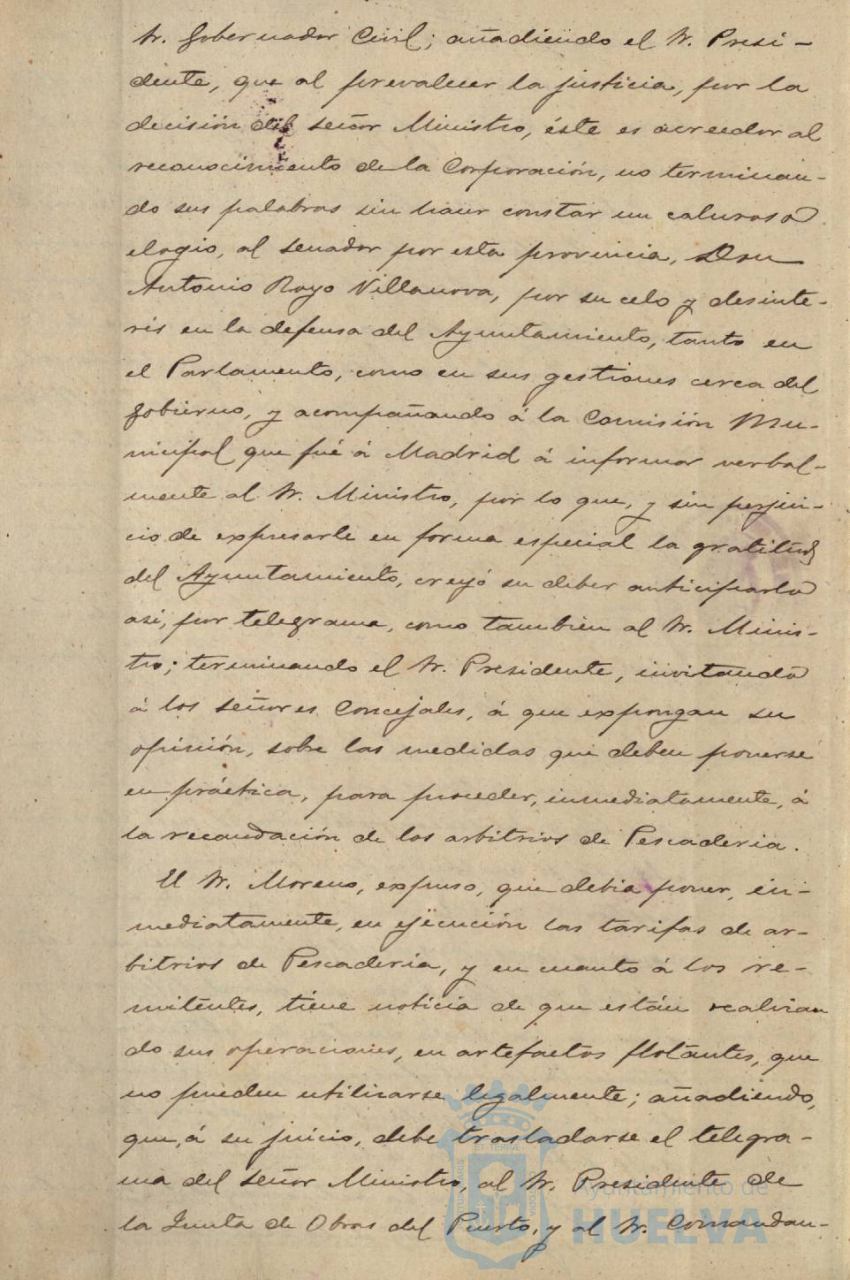 Sr. Gobernador Civil; añadiendo el Sr. Presi-
dente, que al prevalecer la justicia, por la
decisión del señor Ministro, éste es acreedor al
reconocimiento de la Corporación, no terminan-
do sus palabras sin hacer constar un caluroso
elogio, al senador por esta provincia, Don
Antonio Royo Villanova, por su celo y desinte-
rés en la defensa del Ayuntamiento, tanto en
el Parlamento, como en sus gestiones cerca del
Gobierno, y acompañando á la Comisión Mu-
nicipal que fué á Madrid á informar verbal-
mente al Sr. Ministro, por lo que, y sin perjui-
cio de expresarle en forma especial la gratitud
del Ayuntamiento, creyó su deber anticiparla
así, por telegrama, como tambien al Sr. Minis-
tro; terminando el Sr. Presidente, invitando
á los señores Concejales, á que expongan su
opinión, sobre las medidas que deben ponerse
en práctica, para proceder, inmediatamente, á
la recaudación de los arbitrios de Pescaderia.
El Sr. Moreno, expuso, que debia poner, in-
mediatamente, en ejecución las tarifas de ar-
bitrios de Pescaderia, y en cuanto á los re-
mitentes, tiene noticia de que están realizan
do sus operaciones, en artefactos flotantes, que
no pueden utilizarse legalmente; añadiendo,
que, á su juicio, debe trasladarse el telegra-
ma del señor Ministro, al Sr. Presidente de
la Junta de Obras del Puerto, y al Sr. Comandan-
Ayuntamiento de
HUELVA